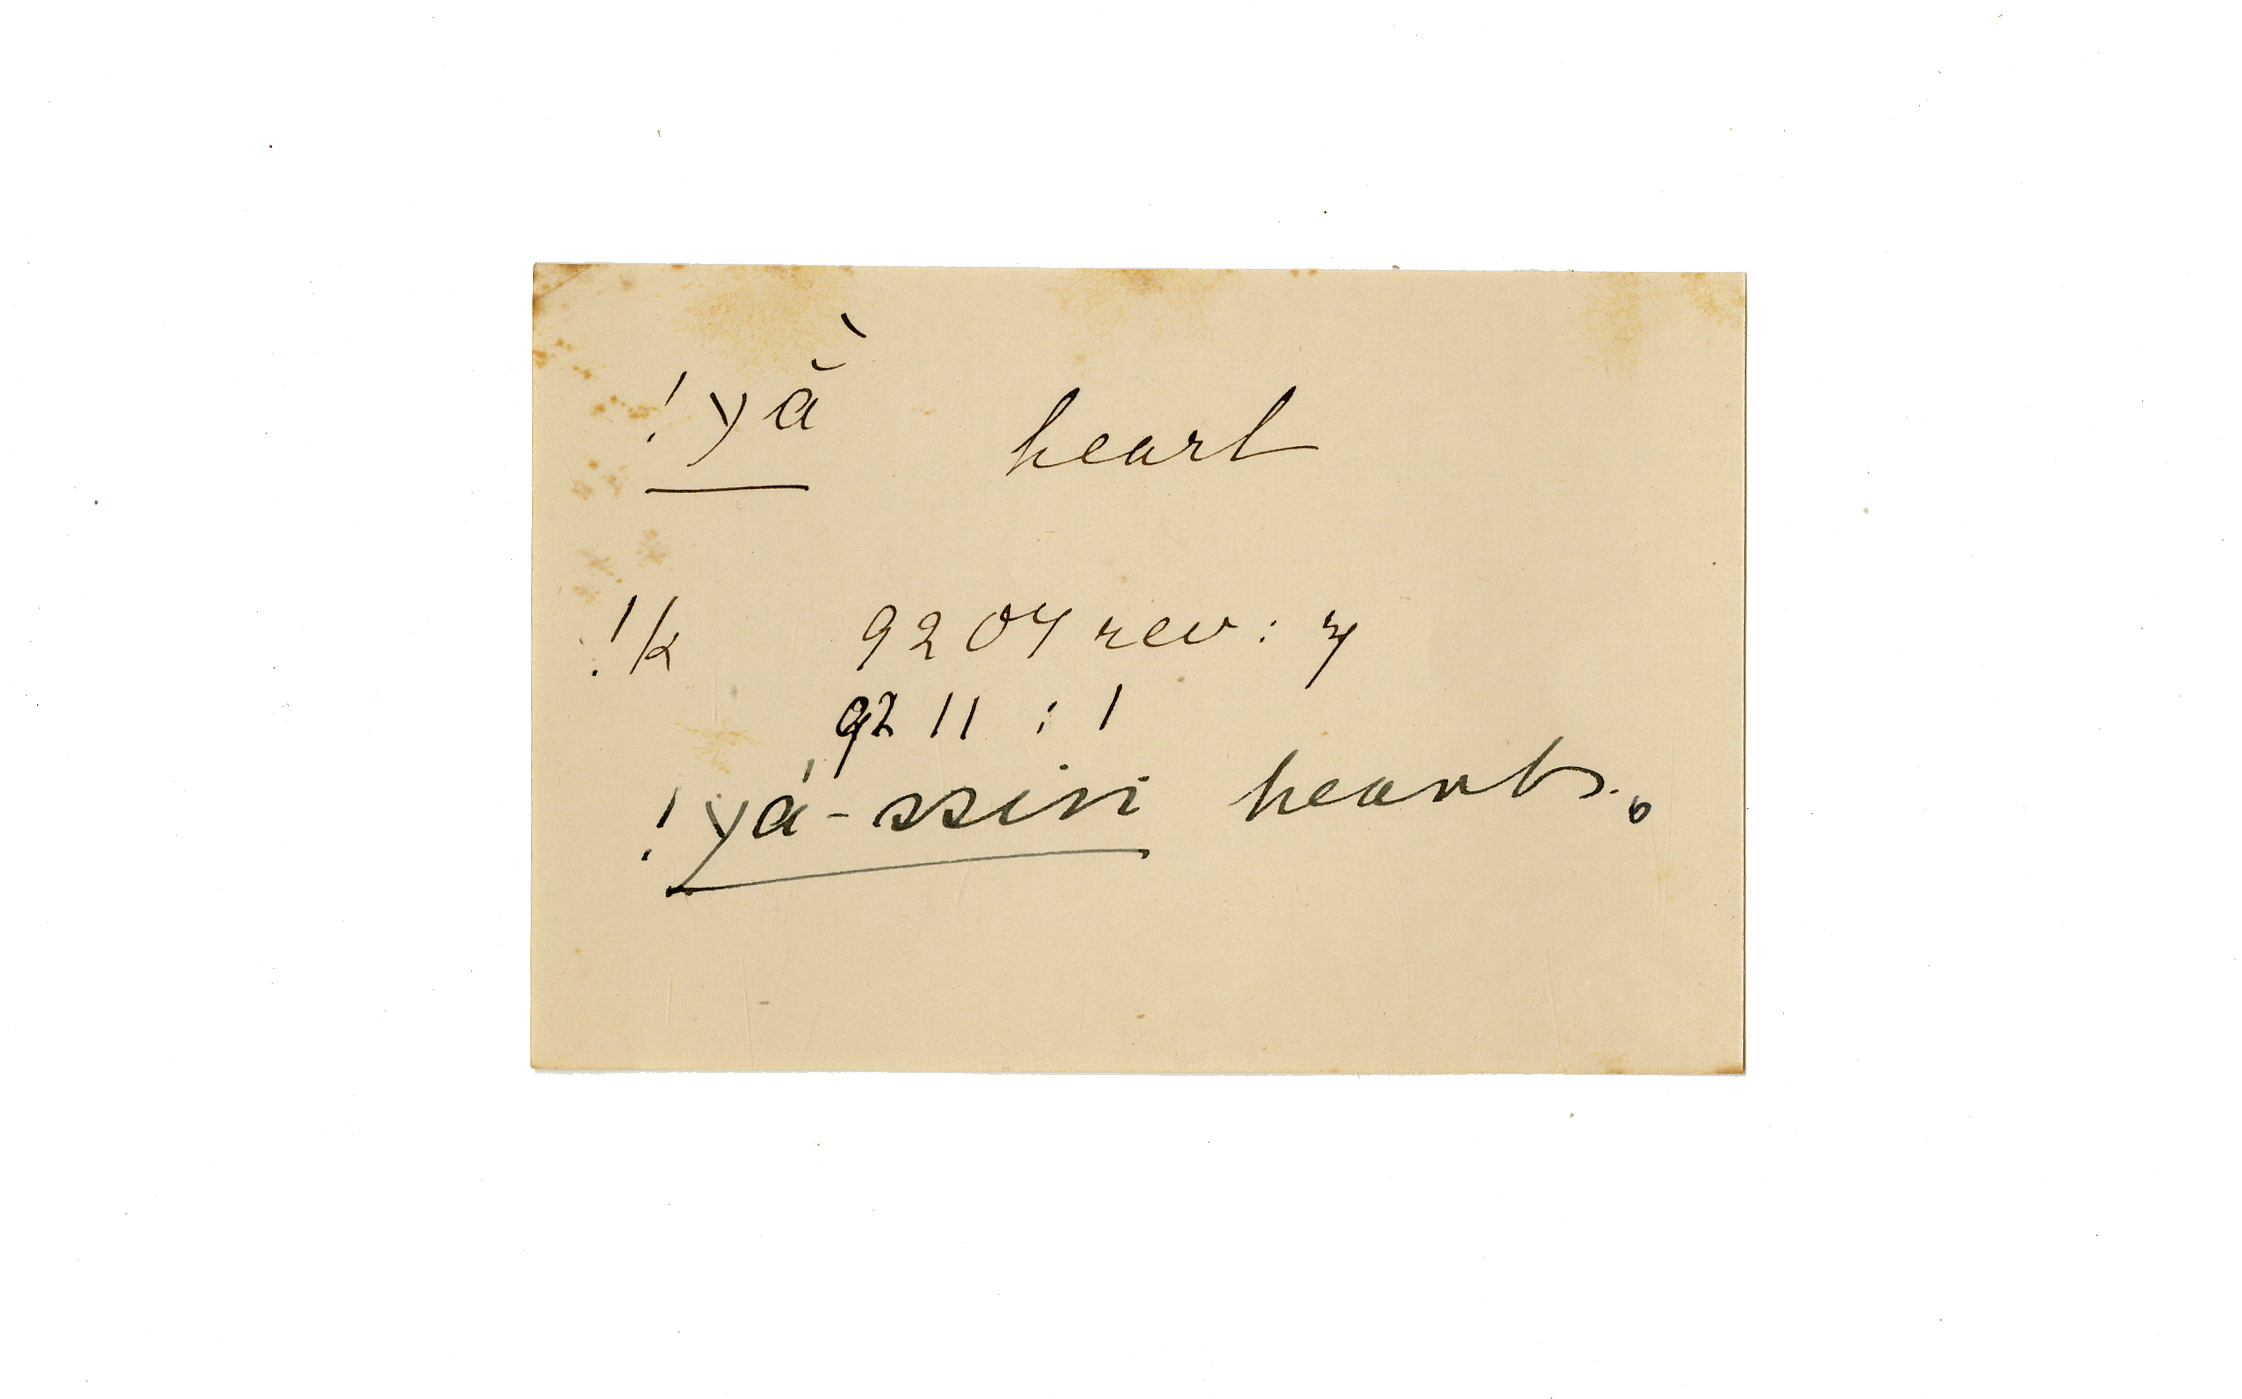 !yằ heart
!k 9207 rev : 7
9211 : 1
!yá-ssin hearts.